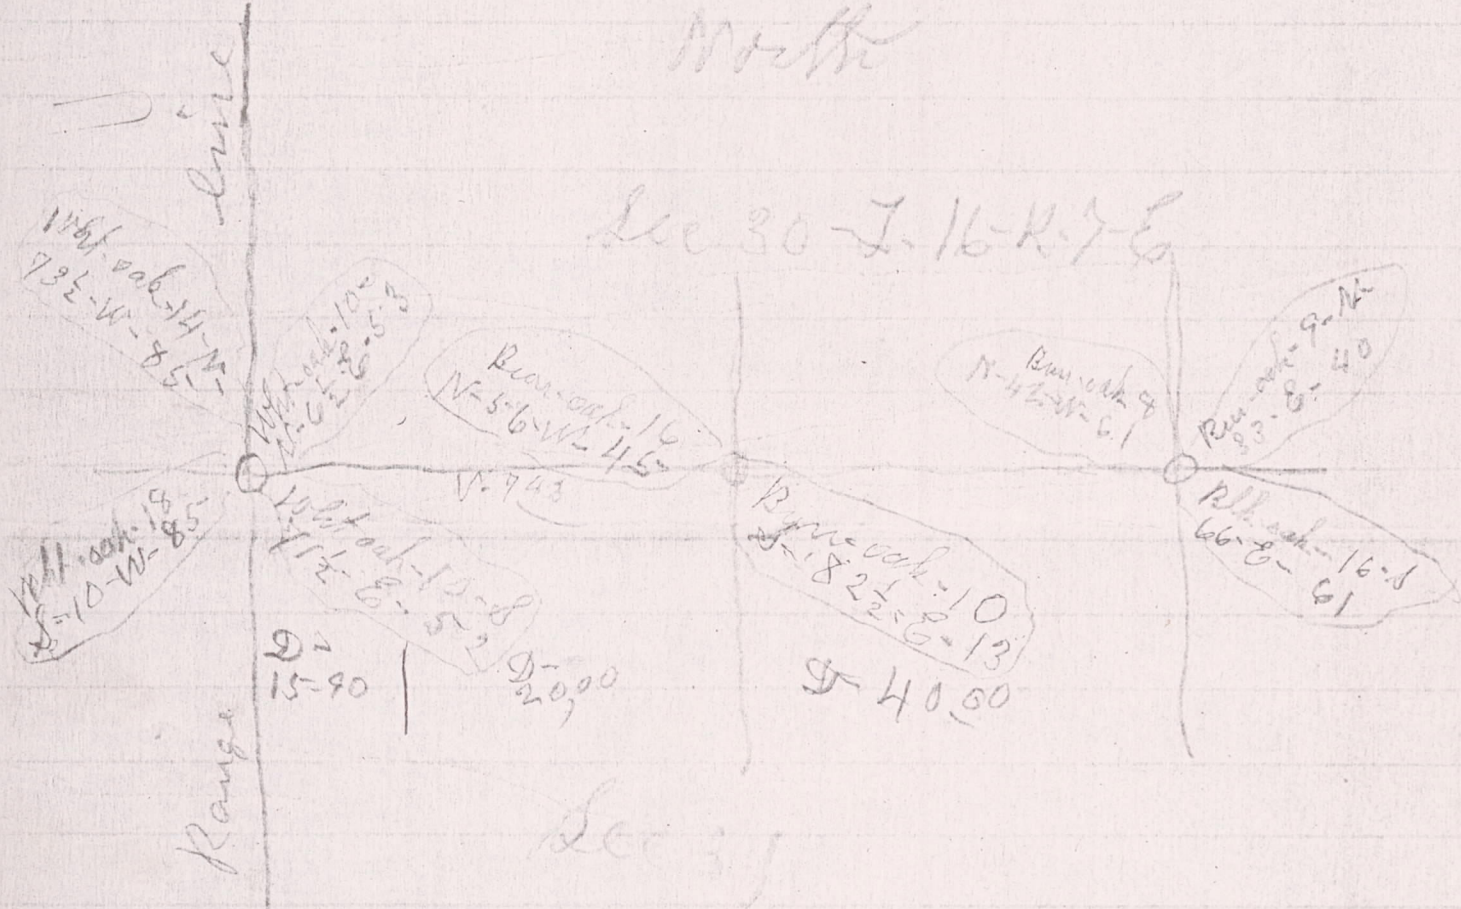 North
Line
Sec 30-T-16-R-7-E
Wht-oak-14-N-
73½-W-85
Wht-oak-10-
N-65½-E-53
Burr-oak-16
N-56-W-45
Burr-oak-8
N-42-W-61
Burr-oak-9-N-
33-E-40
V-743
Wht-oak-18
S-10-W-85
Wht oak-10-S
E-52
Burr-oak-10
S-82½-E-13
Blk-oak-16-S
66-E-61
D-
15-90
D-
20,00
D-40.00
Range
Sec 31